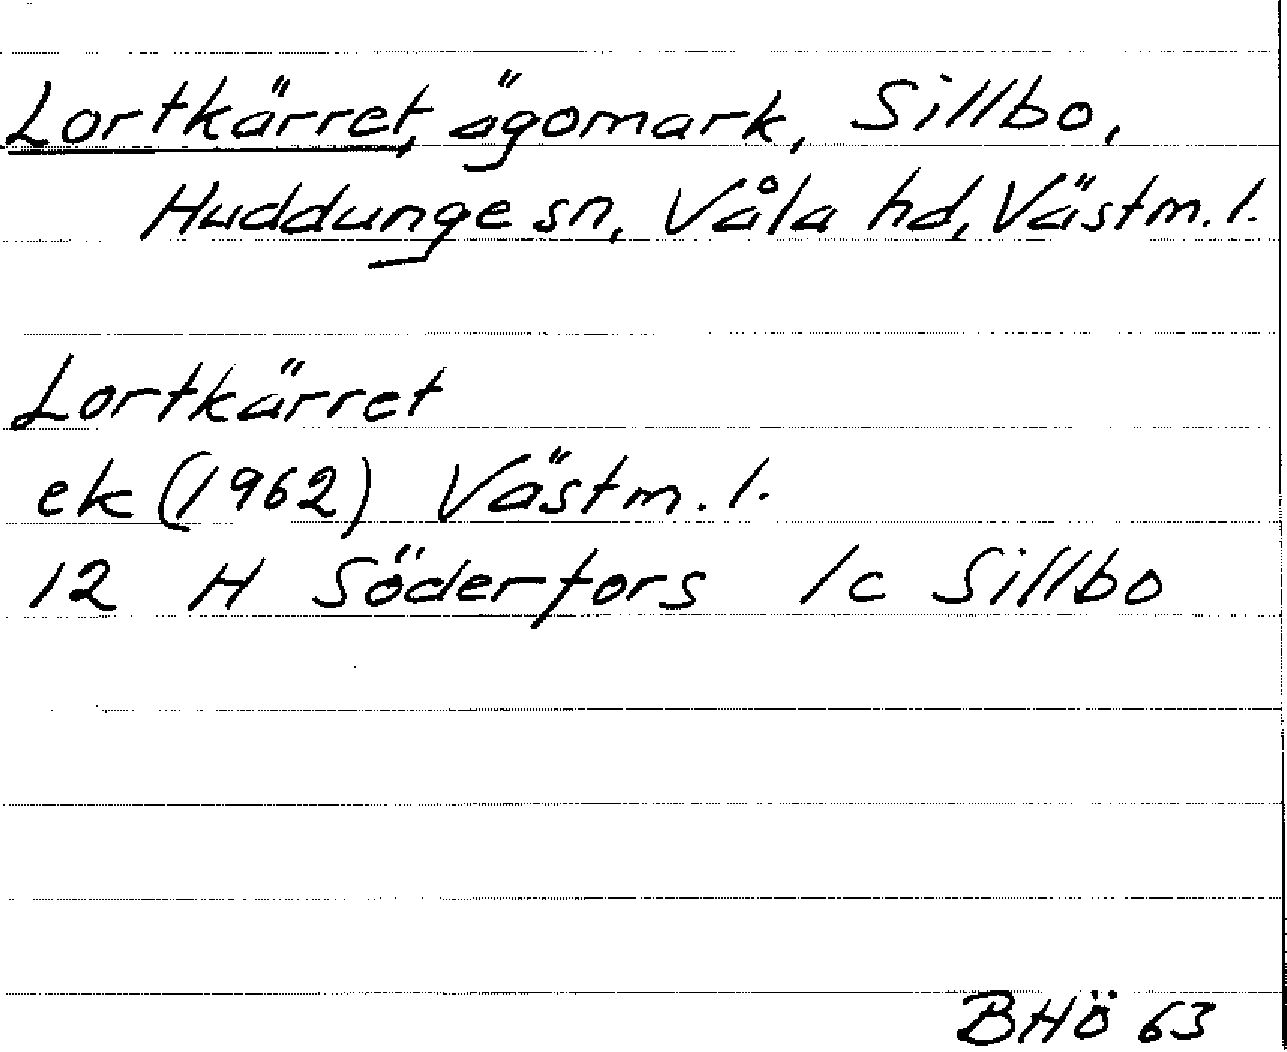 Lortkärret, ägomark, Sillbo,
Huddunge sn, Våla hd, Västm. l.
Lortkärret
ek (1962) Västm. l.
12 H Söderfors 1c Sillbo
BHÖ 63